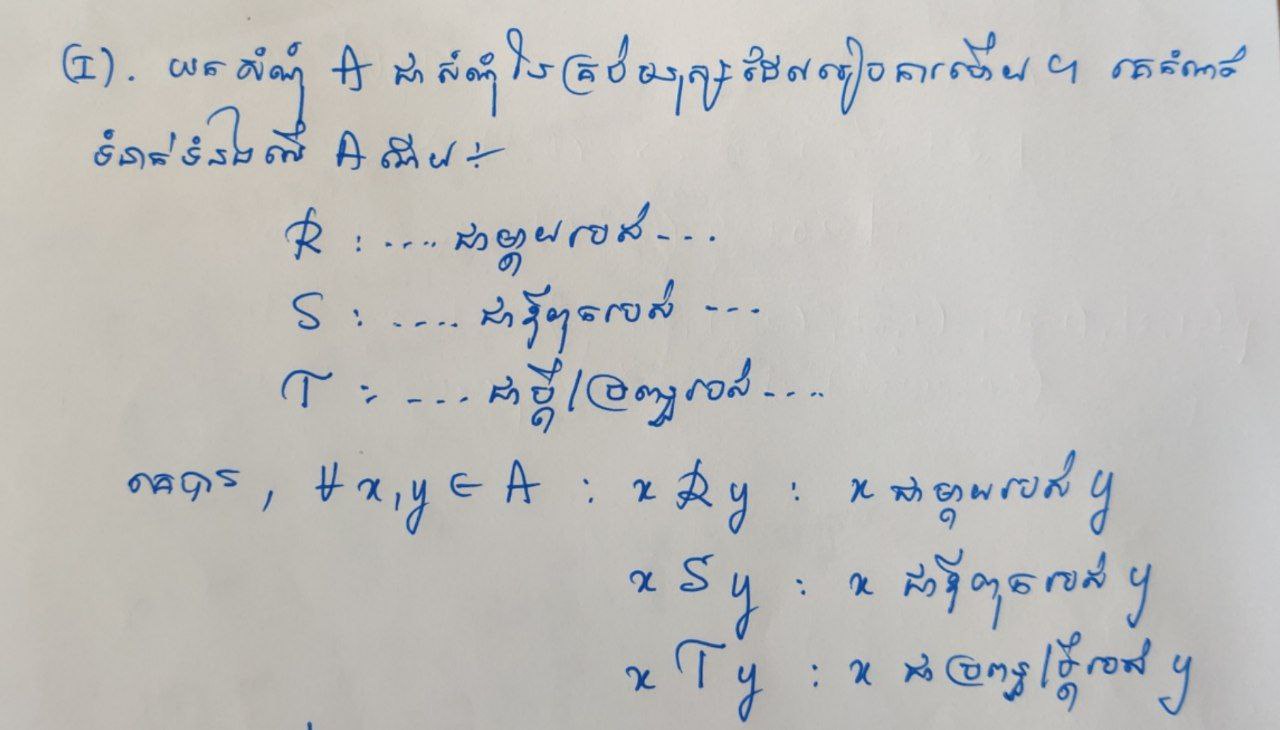 (I). យកសំណុំ A ជាសំណុំនៃគ្រប់មនុស្សដែលរៀបការហើយ ។ គេកំណត់
ទំនាក់ទំនងលើ A ដោយ ÷
R : .... ជាម្តាយរបស់ ---.
S : .... ជាឪពុករបស់ ---
T : ---. ជាប្តី/ប្រពន្ធរបស់ ---.
គេបាន , ∀ x, y ∈ A : x R y : x ជាម្តាយរបស់ y
x S y : x ជាឪពុករបស់ y
x T y : x ជាប្រពន្ធ/ប្តីរបស់ y